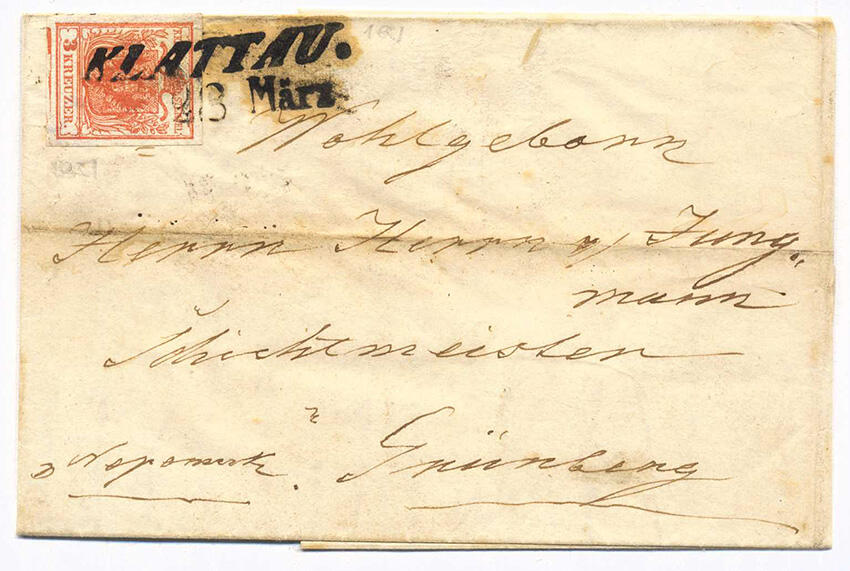 3 KREUZER.
KLATTAU.
18 März
Wohlgeborn
Herrn Herrn v/ Jung-
mann
Schichtmeister
Nepomuk. Grünberg